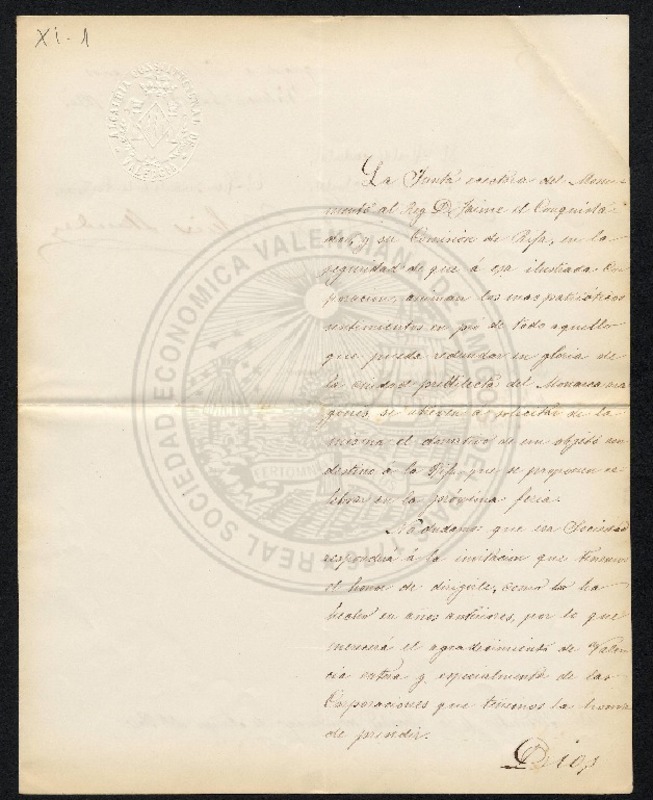 XI-1
ALCALDIA CONSTITUCIONAL DE VALENCIA
La Junta ejecutora del Monu-
mento al Rey D. Jaime el Conquista-
dor, y su Comision de Rifa, en la
seguridad de que á esa ilustrada Cor-
poracion, animan los mas patrióticos
sentimientos en pró de todo aquello
que pueda redundar en gloria de
la ciudad predilecta del Monarca ara-
gonés, se atreven á solicitar de la
misma el donativo de un objeto con
destino á la Rifa, que se proponen ce-
lebrar en la próxima feria.
No dudamos que esa Sociedad
responderá á la invitacion que tenemos
el honor de dirigirle, como lo ha
hecho en años anteriores, por lo que
merecerá el agradecimiento de Valen-
cia entera y especialmente de las
Corporaciones que tenemos la honra
de presidir.
Dios
REAL SOCIEDAD ECONOMICA VALENCIANA DE AMIGOS DEL PAIS